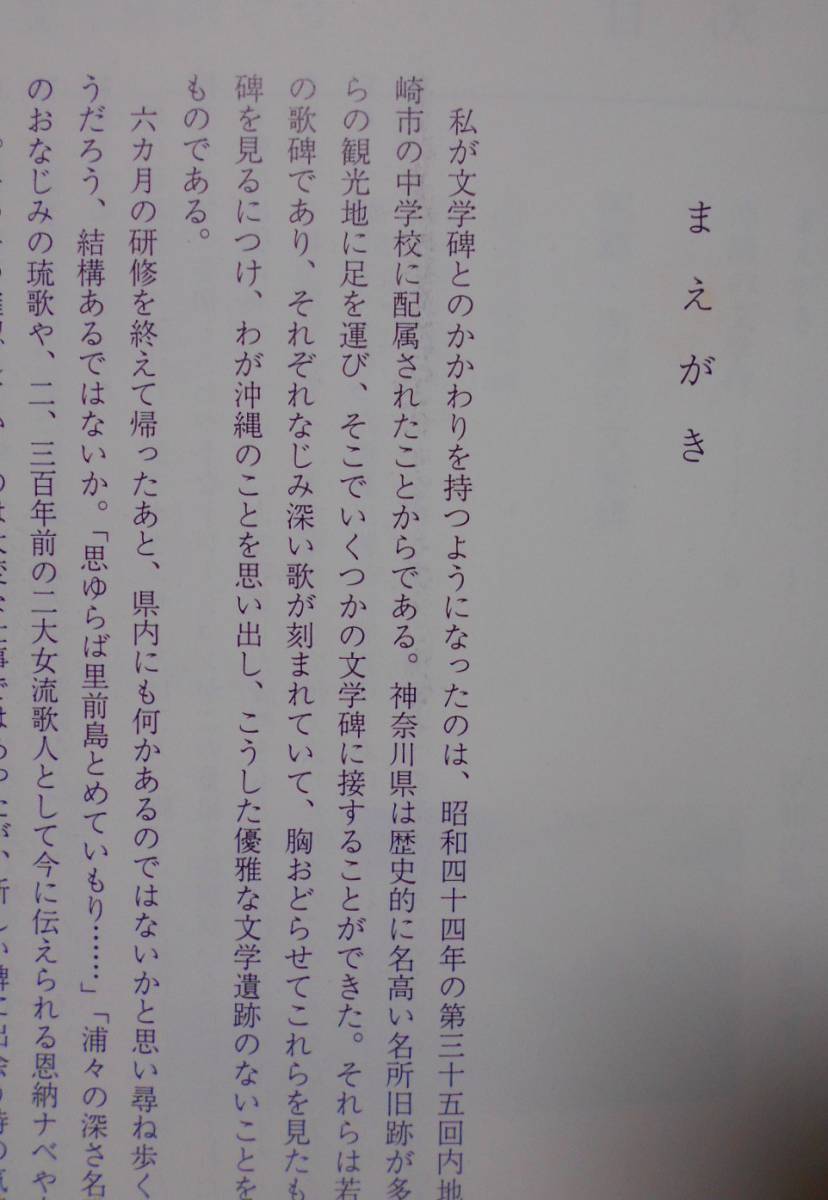 まえがき
私が文学碑とのかかわりを持つようになったのは、昭和四十四年の第三十五回内地
崎市の中学校に配属されたことからである。神奈川県は歴史的に名高い名所旧跡が多
らの観光地に足を運び、そこでいくつかの文学碑に接することができた。それらは若
の歌碑であり、それぞれなじみ深い歌が刻まれていて、胸おどらせてこれらを見たも
碑を見るにつけ、わが沖縄のことを思い出し、こうした優雅な文学遺跡のないことを
ものである。
六カ月の研修を終えて帰ったあと、県内にも何かあるのではないかと思い尋ね歩く
うだろう、結構あるではないか。「思ゆらば里前島とめていもり……」「浦々の深さ名
のおなじみの琉歌や、二、三百年前の二大女流歌人として今に伝えられる恩納ナベや
のは大変な仕事ではあったが、新しい碑に出会う時の気